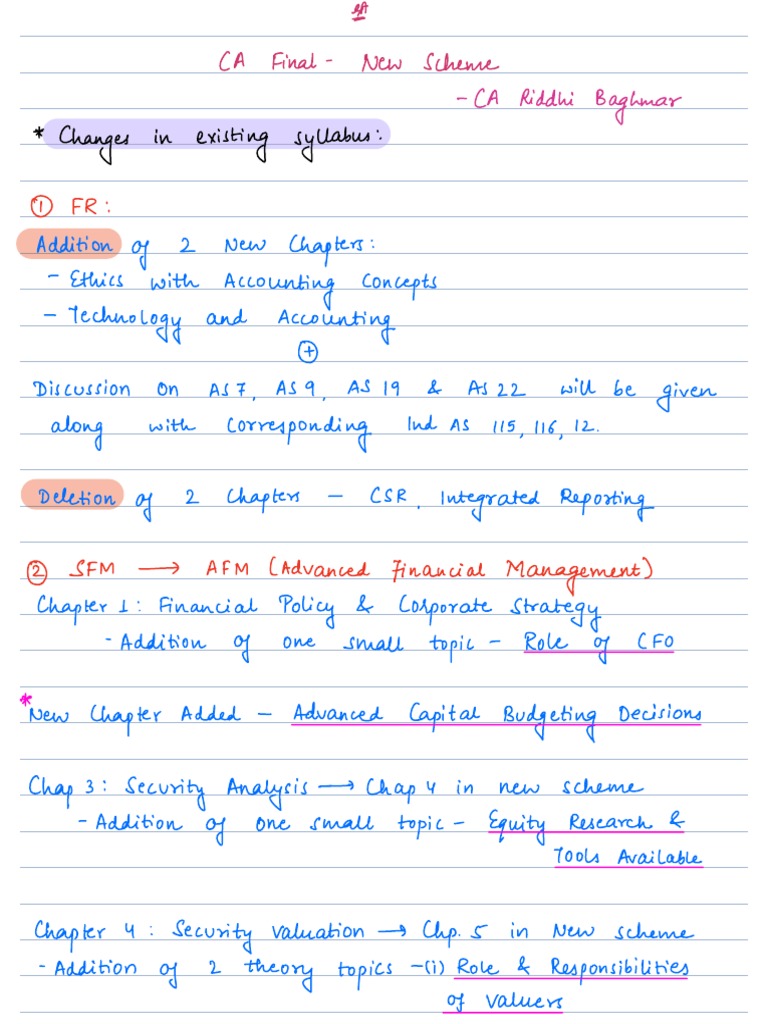 CA Final - New Scheme
- CA Riddhi Baghmar
* Changes in existing syllabus:
① FR:
Addition of 2 New Chapters:
- Ethics with Accounting Concepts
- Technology and Accounting
⊕
Discussion on AS 7, AS 9, AS 19 & AS 22 will be given
along with corresponding Ind AS 115, 116, 12.
Deletion of 2 Chapters - CSR, Integrated Reporting
② SFM → AFM (Advanced Financial Management)
Chapter 1: Financial Policy & Corporate Strategy
- Addition of one small topic - Role of CFO
* New Chapter Added - Advanced Capital Budgeting Decisions
Chap 3: Security Analysis → Chap 4 in new scheme
- Addition of one small topic - Equity Research &
Tools Available
Chapter 4: Security Valuation → Chp. 5 in New scheme
- Addition of 2 theory topics - (i) Role & Responsibilities
of Valuers